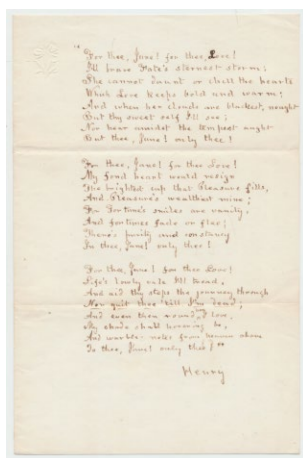 "For thee, June! for thee, Love!
I'll brave Fate's sternest storm;
She cannot daunt or chill the hearts
Which Love keeps bold and warm;
And when her clouds are blackest, nought
But thy sweet self I'll see;
Nor hear amidst the tempest aught
But thee, June! only thee!
For thee, June! for thee Love!
My fond heart would resign
The brightest cup that Pleasure fills,
And Pleasure's wealthiest mine;
For Fortune's smiles are vanity,
And fade or flee;
There's purity and constancy
In thee, June! only thee!
For thee, June! for thee Love!
Life's lonely vale I'll tread,
And aid thy steps the journey through
Nor quit thee 'till I'm dead;
And even then round, Love,
My shade shall hovering be,
And warble notes from above
To thee, June! only thee!"
Henry